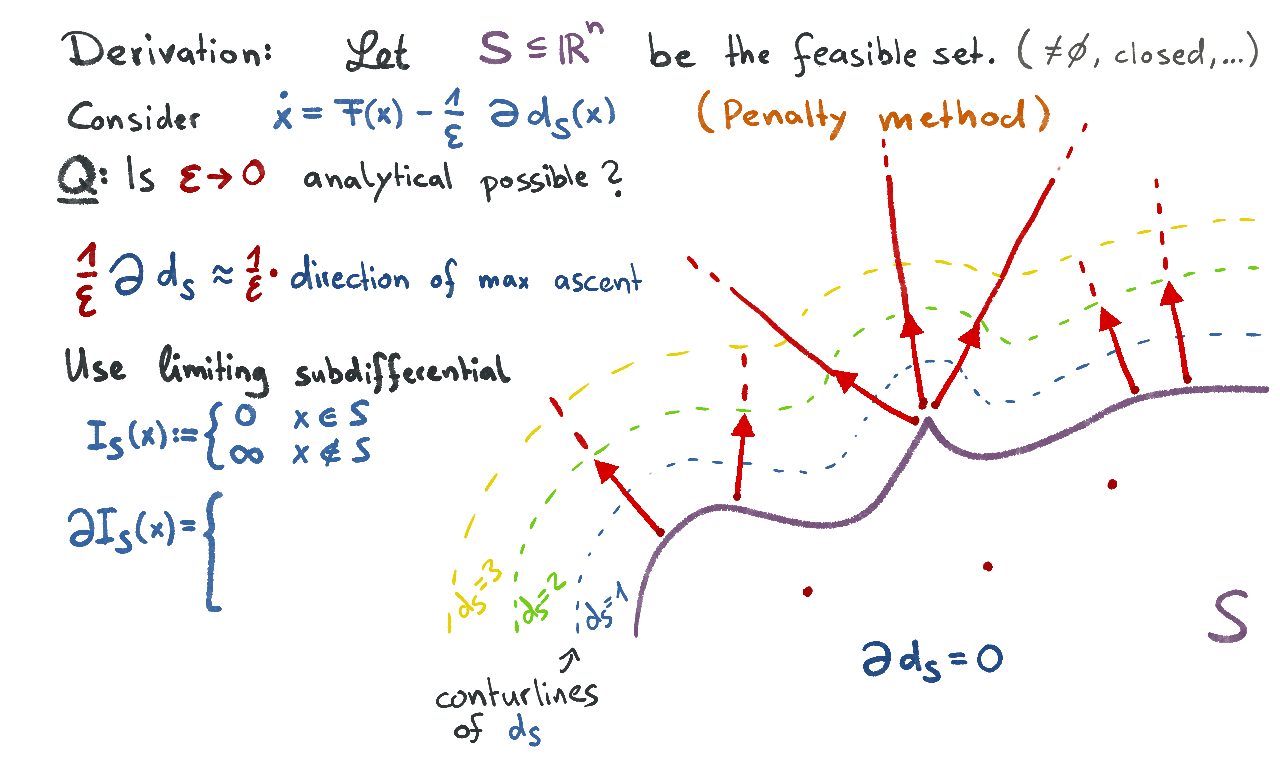 Derivation: Let S ⊆ ℝⁿ be the feasible set. (≠∅, closed,...)
Consider ẋ = F(x) - 1/ε ∂ d_S(x) (Penalty method)
Q: Is ε→0 analytical possible?
1/ε ∂ d_S ≈ 1/ε · direction of max ascent
Use limiting subdifferential
I_S(x) := { 0 x ∈ S
∞ x ∉ S
∂I_S(x) = {
d_S=3
d_S=2
d_S=1
S
∂ d_S = 0
conturlines
of d_S